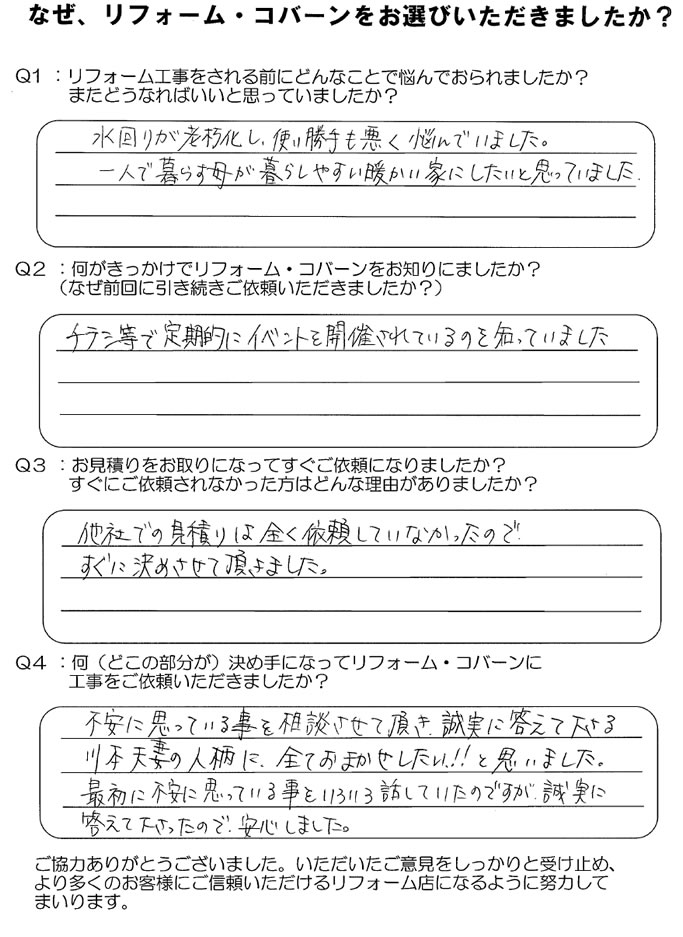 なぜ、リフォーム・コバーンをお選びいただきましたか？
Q1 ：リフォーム工事をされる前にどんなことで悩んでおられましたか？
またどうなればいいと思っていましたか？
水回りが老朽化し、使い勝手も悪く悩んでいました。
一人で暮らす母が暮らしやすい暖かい家にしたいと思っていました.
Q2 ：何がきっかけでリフォーム・コバーンをお知りにましたか？
（なぜ前回に引き続きご依頼いただきましたか？）
チラシ等で定期的にイベントを開催されているのを知っていました
Q3 ：お見積りをお取りになってすぐご依頼になりましたか？
すぐにご依頼されなかった方はどんな理由がありましたか？
他社での見積りは全く依頼していなかったので
すぐに決めさせて頂きました。
Q4 ：何（どこの部分が）決め手になってリフォーム・コバーンに
工事をご依頼いただきましたか？
不安に思っている事を相談させて頂き、誠実に答えて下さる
川本夫妻の人柄に、全ておまかせしたい!!と思いました。
最初に不安に思っている事をいろいろ話していたのですが、誠実に
答えて下さったので、安心しました。
ご協力ありがとうございました。いただいたご意見をしっかりと受け止め、
より多くのお客様にご信頼いただけるリフォーム店になるように努力して
まいります。